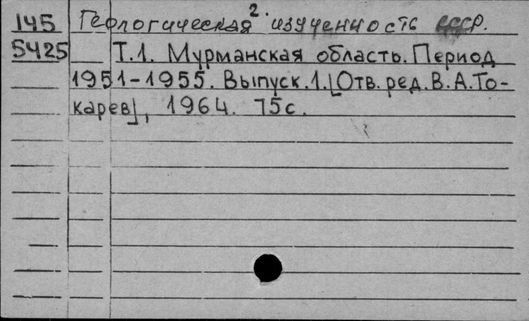 2.
145 Геологическая изученность СССР.
5425 Т.1. Мурманская область. Период
1951-1955. Выпуск.1. [Отв. ред. В.А.То-
карев], 1964. 75с.